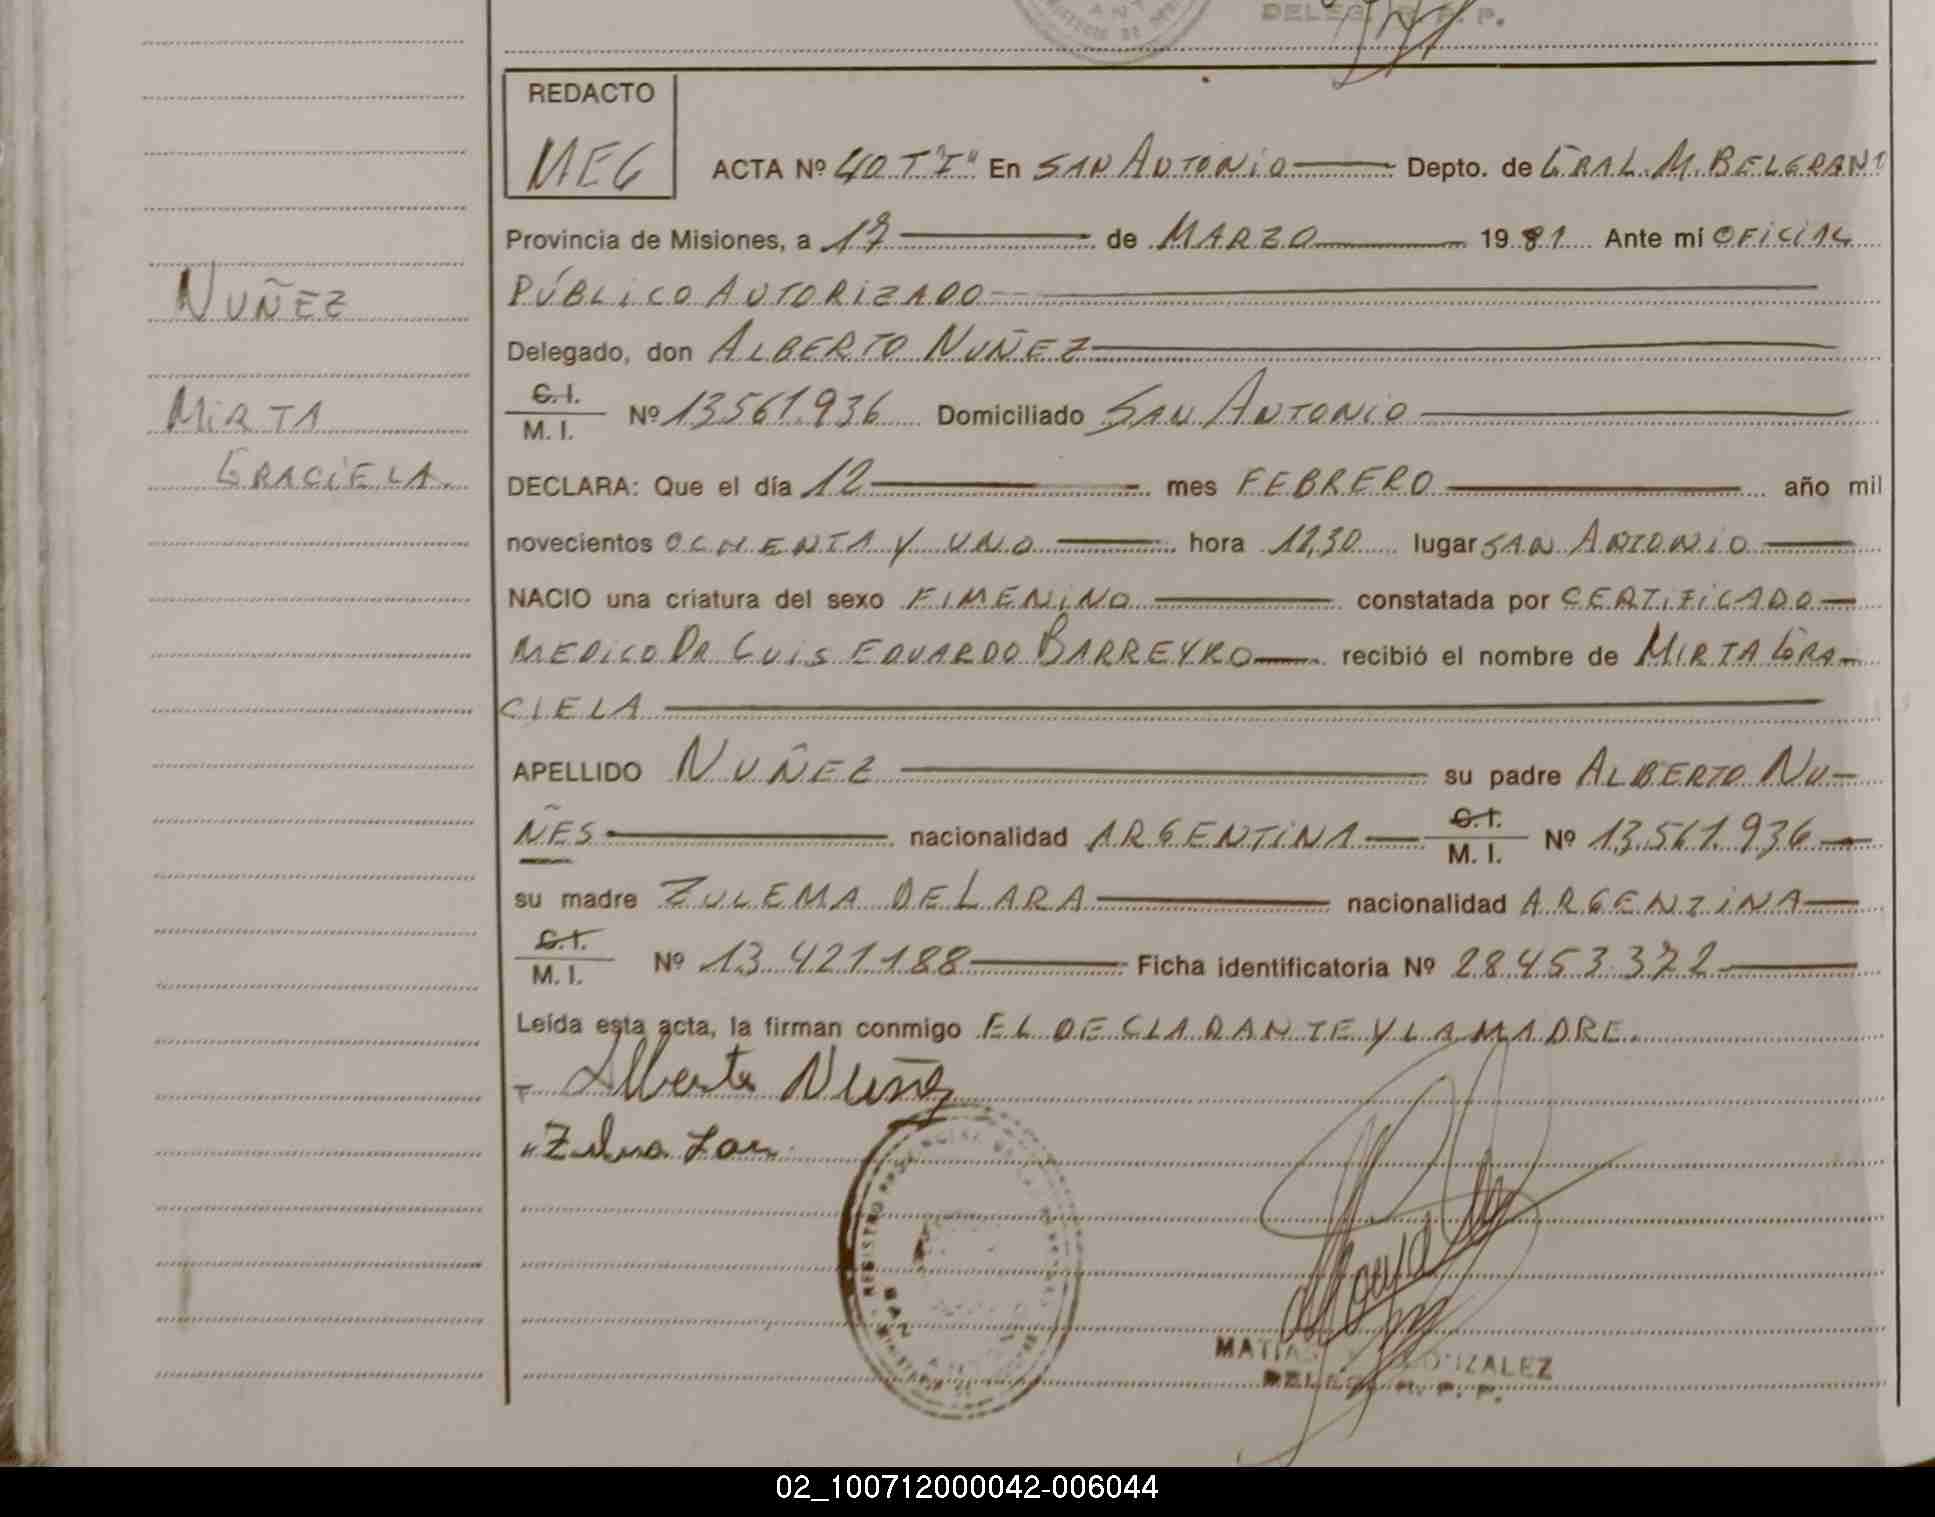 DELEG. R. P. P.
REDACTO
MEG
ACTA Nº 40 T"I" En SAN ANTONIO Depto. de GRAL. M. BELGRANO
Provincia de Misiones, a 17 de MARZO 1981 Ante mí OFICIAL
PÚBLICO AUTORIZADO
Delegado, don ALBERTO NUÑEZ
C. I.
M. I. Nº 13.561.936 Domiciliado SAN ANTONIO
DECLARA: Que el día 12 mes FEBRERO año mil
novecientos OCHENTA Y UNO hora 12,30 lugar SAN ANTONIO
NACIO una criatura del sexo FIMENINO constatada por CERTIFICADO
MEDICO DR LUIS EDUARDO BARREYRO recibió el nombre de MIRTA GRA-
CIELA
APELLIDO NUÑEZ su padre ALBERTO NU-
ÑES nacionalidad ARGENTINA C. I. M. I. Nº 13.561.936
su madre ZULEMA DE LARA nacionalidad ARGENTINA
C. I.
M. I. Nº 13.421.188 Ficha identificatoria Nº 28.453.372
Leída esta acta, la firman conmigo EL DECLARANTE Y LA MADRE.
Alberto Nuñez
NUÑEZ
MIRTA
GRACIELA.
REGISTRO
MATIAS GONZALEZ
DELEG. R. P. P.
02_100712000042-006044